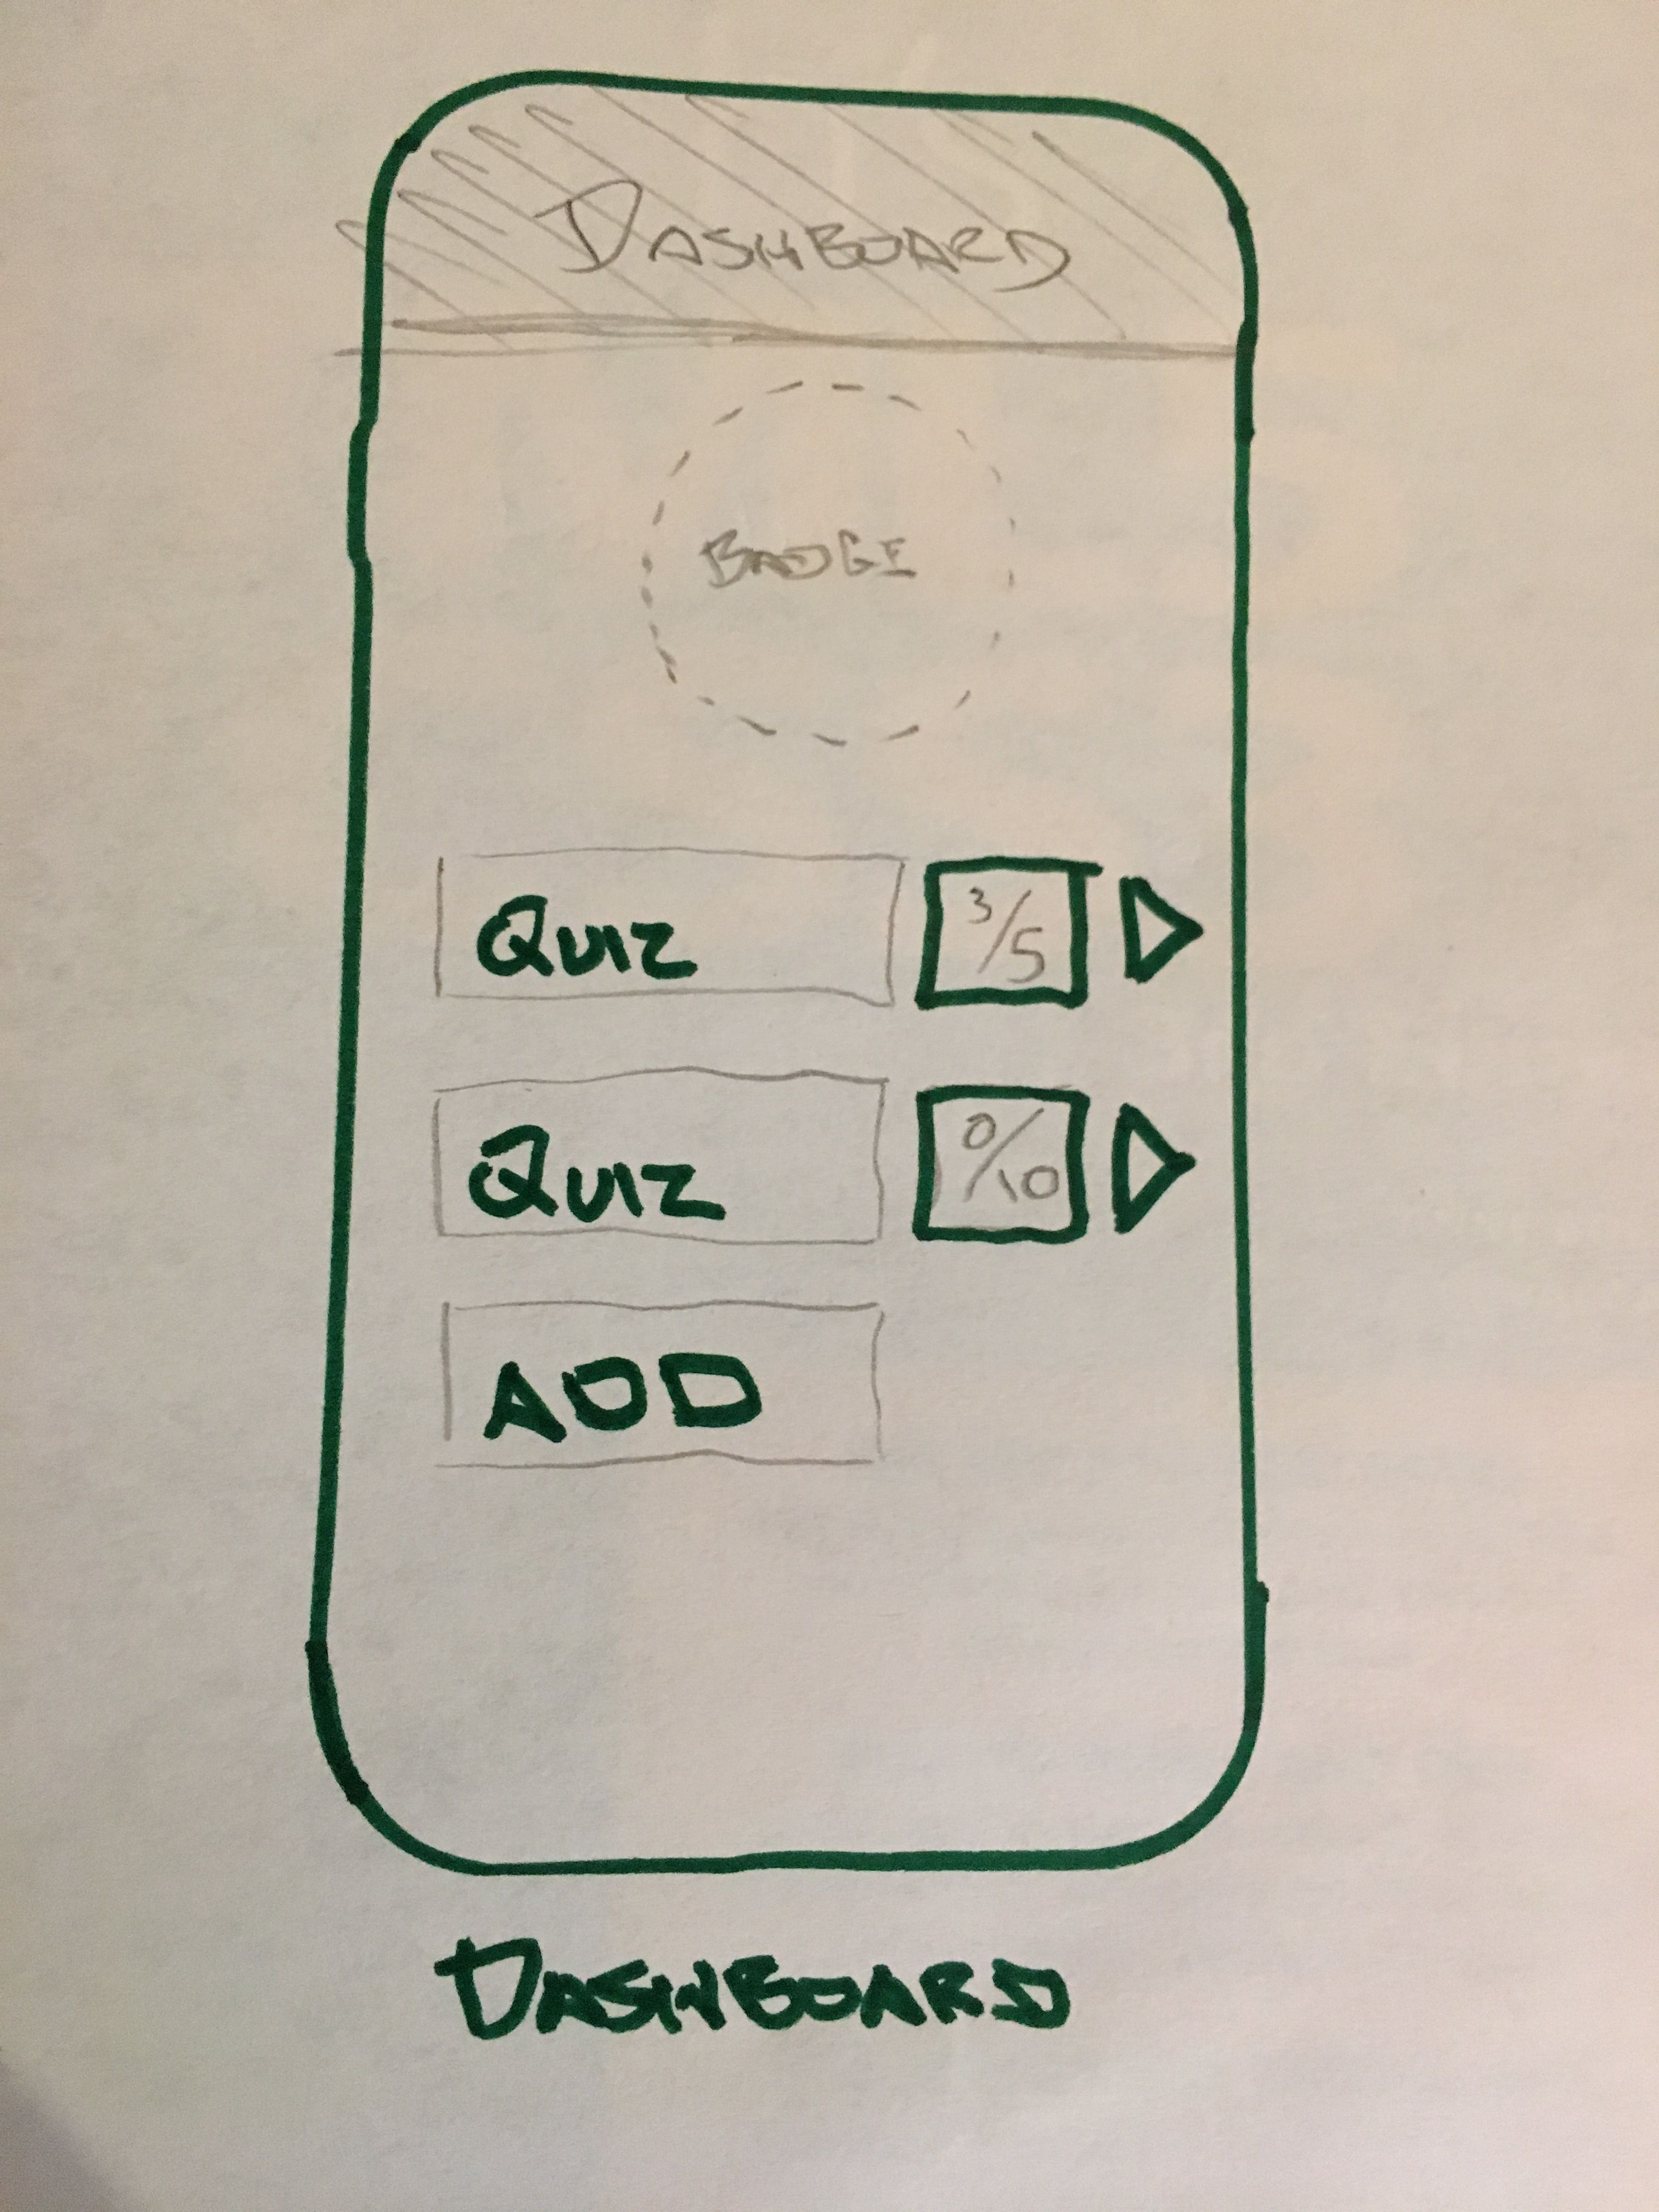 DASHBOARD
BADGE
QUIZ 3/5
QUIZ 0/10
ADD
DASHBOARD